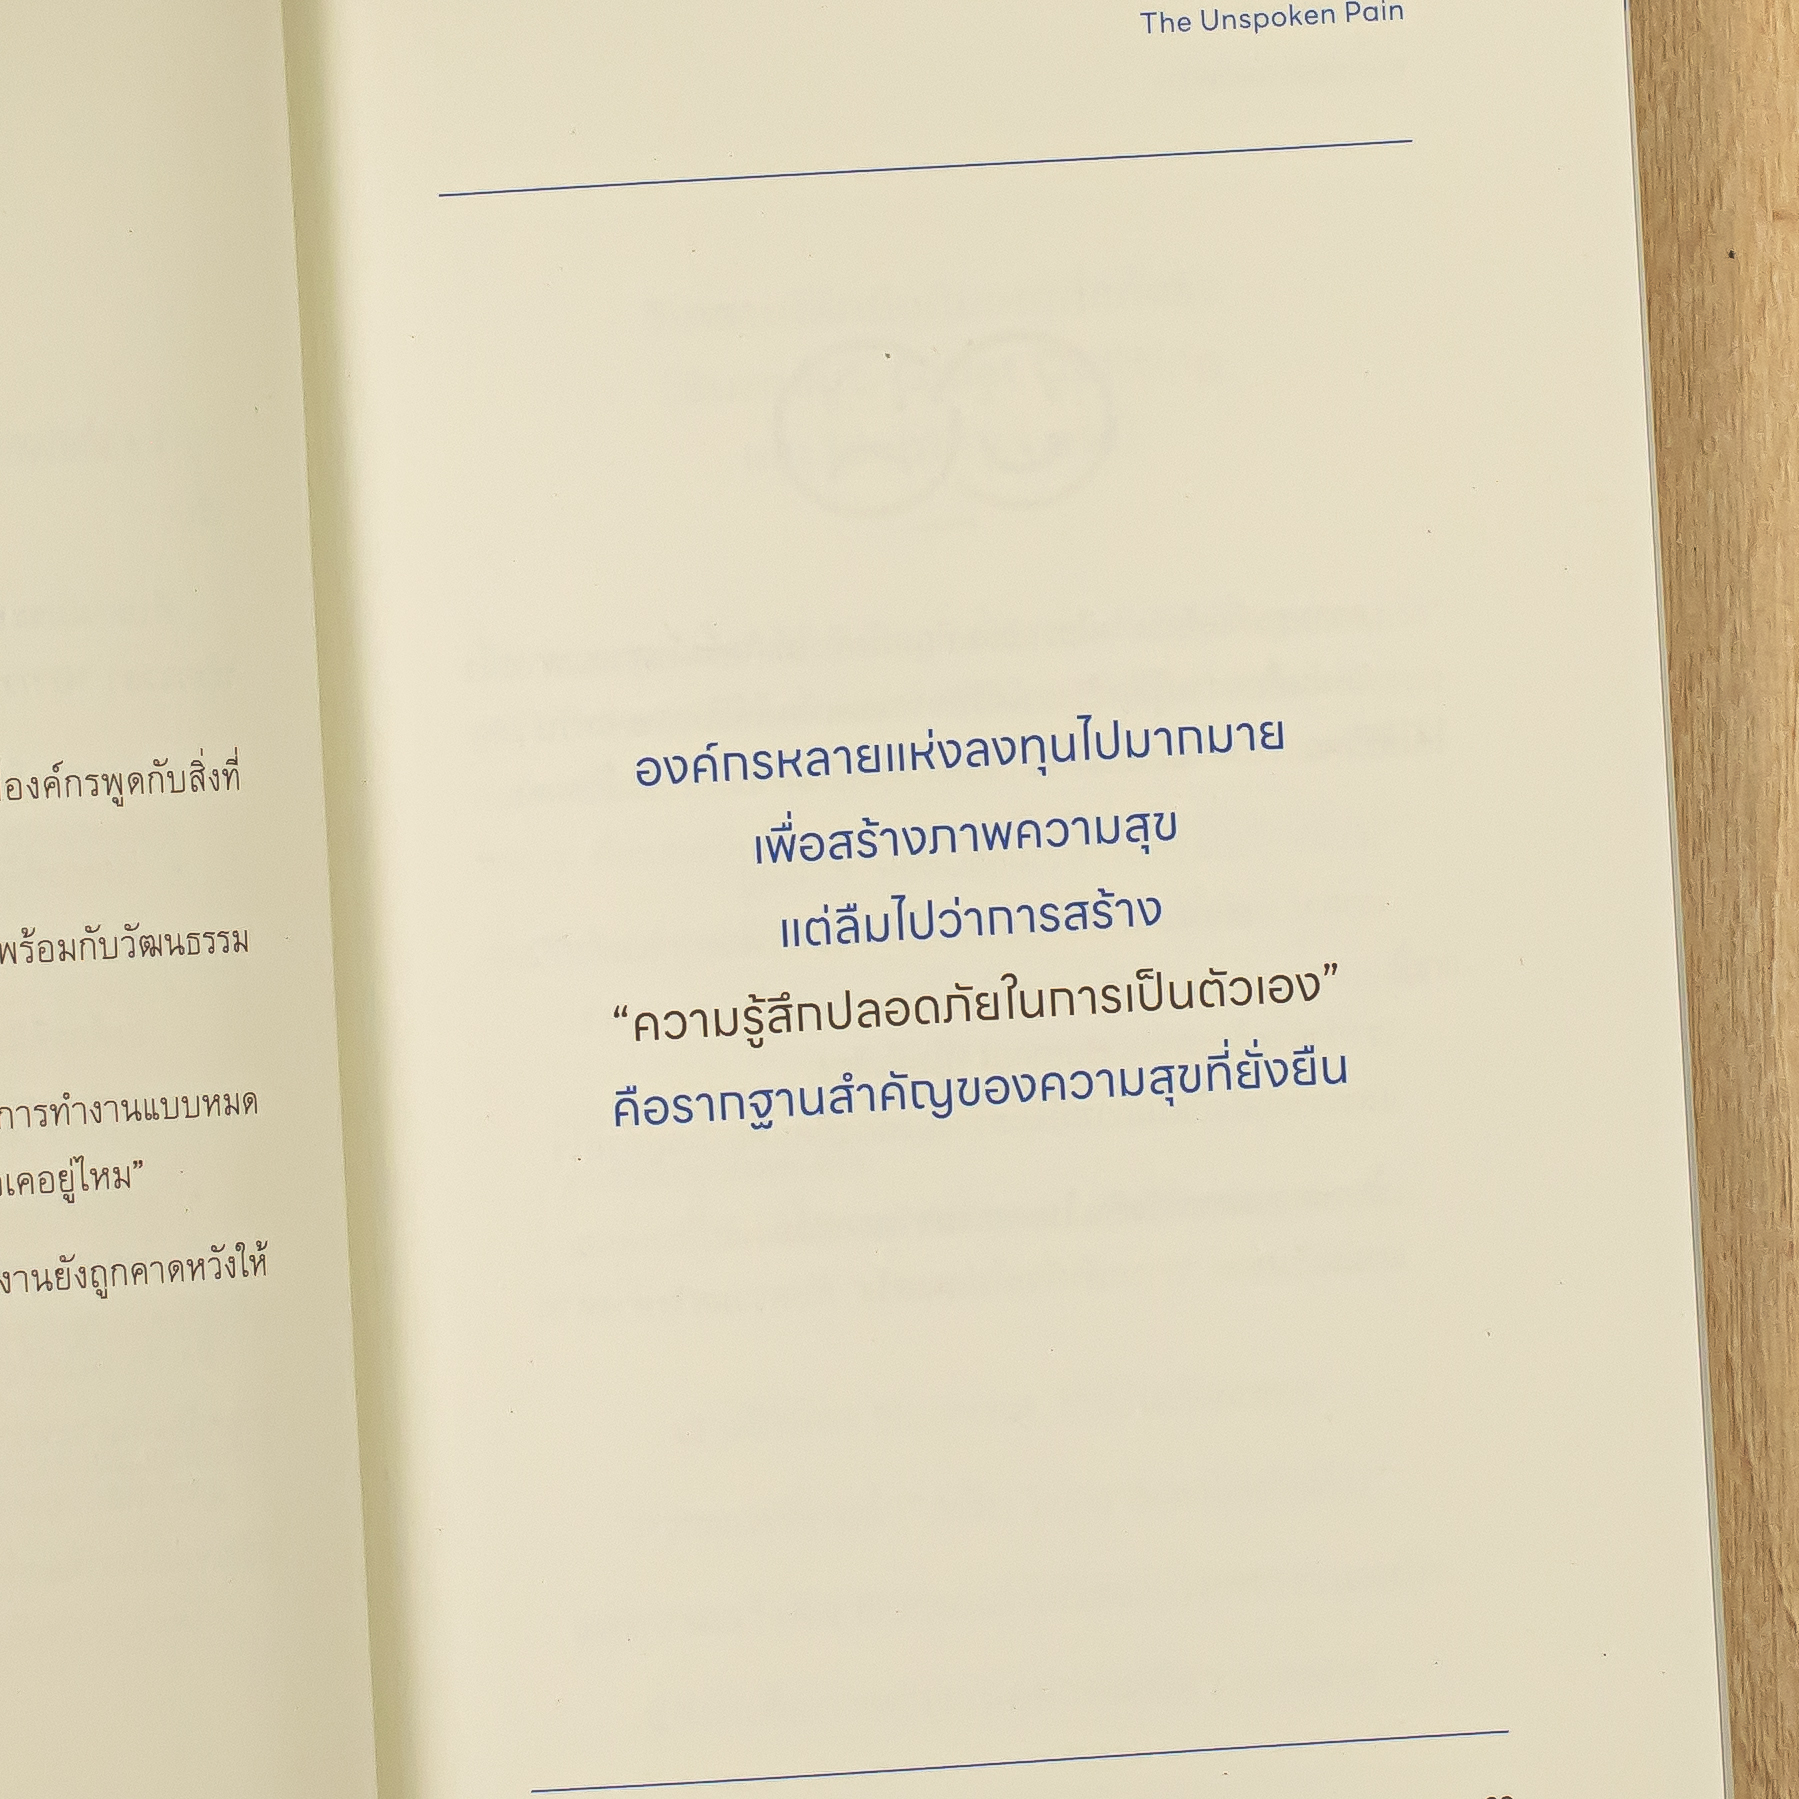 องค์กรพูดกับสิ่งที่
พร้อมกับวัฒนธรรม
การทำงานแบบหมด
เคอยู่ไหม”
งานยังถูกคาดหวังให้
The Unspoken Pain
องค์กรหลายแห่งลงทุนไปมากมาย
เพื่อสร้างภาพความสุข
แต่ลืมไปว่าการสร้าง
“ความรู้สึกปลอดภัยในการเป็นตัวเอง”
คือรากฐานสำคัญของความสุขที่ยั่งยืน